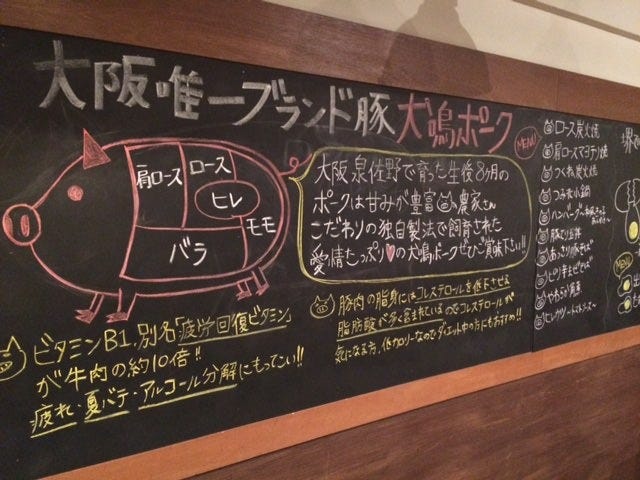 大阪唯一ブランド豚 犬鳴ポーク
肩ロース
ロース
ヒレ
バラ
モモ
大阪 泉佐野で育った生後8ヶ月の
ポークは甘みが豊富 農家さん
こだわりの独自製法で飼育された
愛情たっぷり♡の犬鳴ポークぜひご賞味下さい!!
ビタミンB1.別名「疲労回復ビタミン」
が牛肉の約10倍!!
疲れ・夏バテ・アルコール分解にもってこい!!
豚肉の脂身にはコレステロールを低下させる
脂肪酸が多く含まれているのでコレステロールが
気になる方、低カロリーなのでダイエット中の方にもおすすめ!!
MENU
ロース炭火焼
肩ロースマヨテリ焼
つくね炭火焼
つみれ小鍋
ハンバーグ
MENU